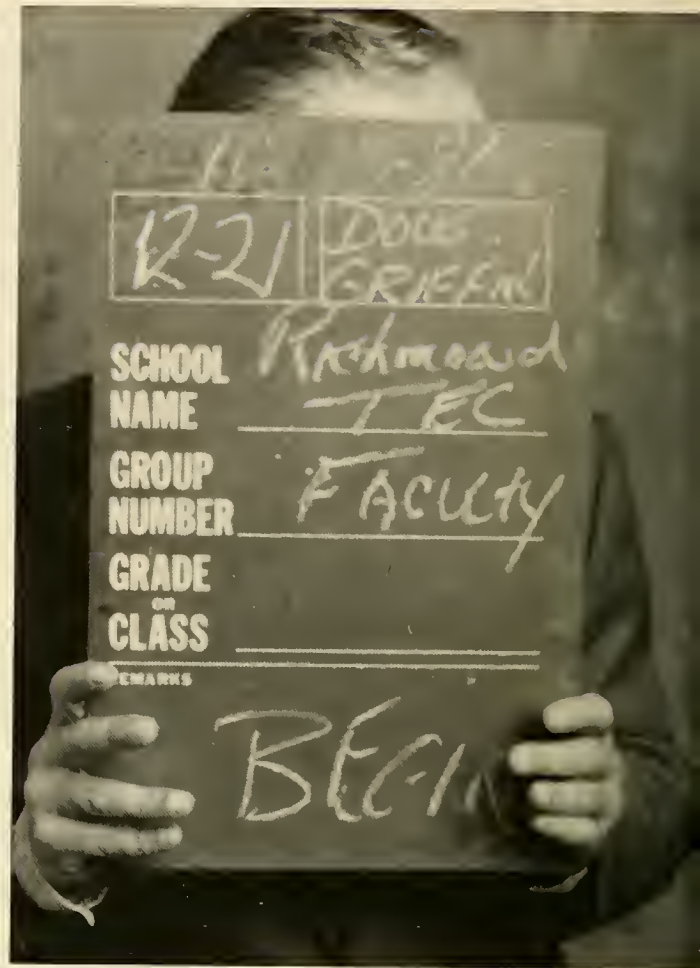 R-21
DOUG
GRIFFIN
SCHOOL Richmond
NAME TEC
GROUP
NUMBER FACULTY
GRADE
OR
CLASS
REMARKS
BEGIN